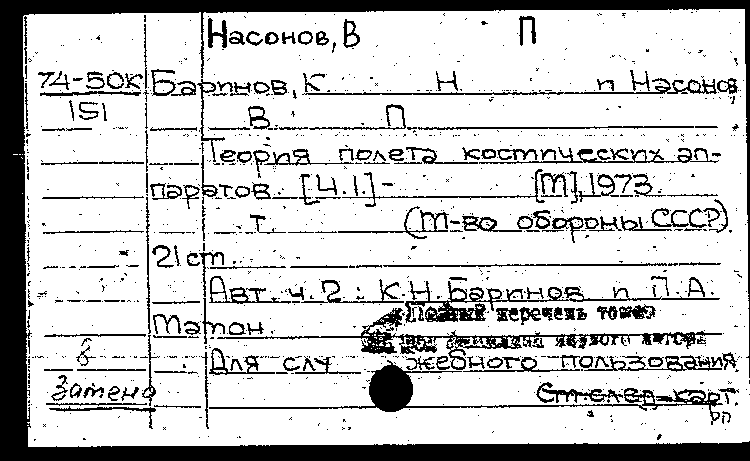 Насонов, В П
74-50к Баринов, К Н и Насонов
151 В. П
Теория полета космических ап-
паратов. [Ч.1.] - [М], 1973.
т. (М-во обороны СССР).
21 см.
Авт. ч. 2: К.Н. Баринов и П.А.
Мамон.
Полный перечень томов
под фамилией первого автора
8 Для служебного пользования
Замена См. след. карт.
рп